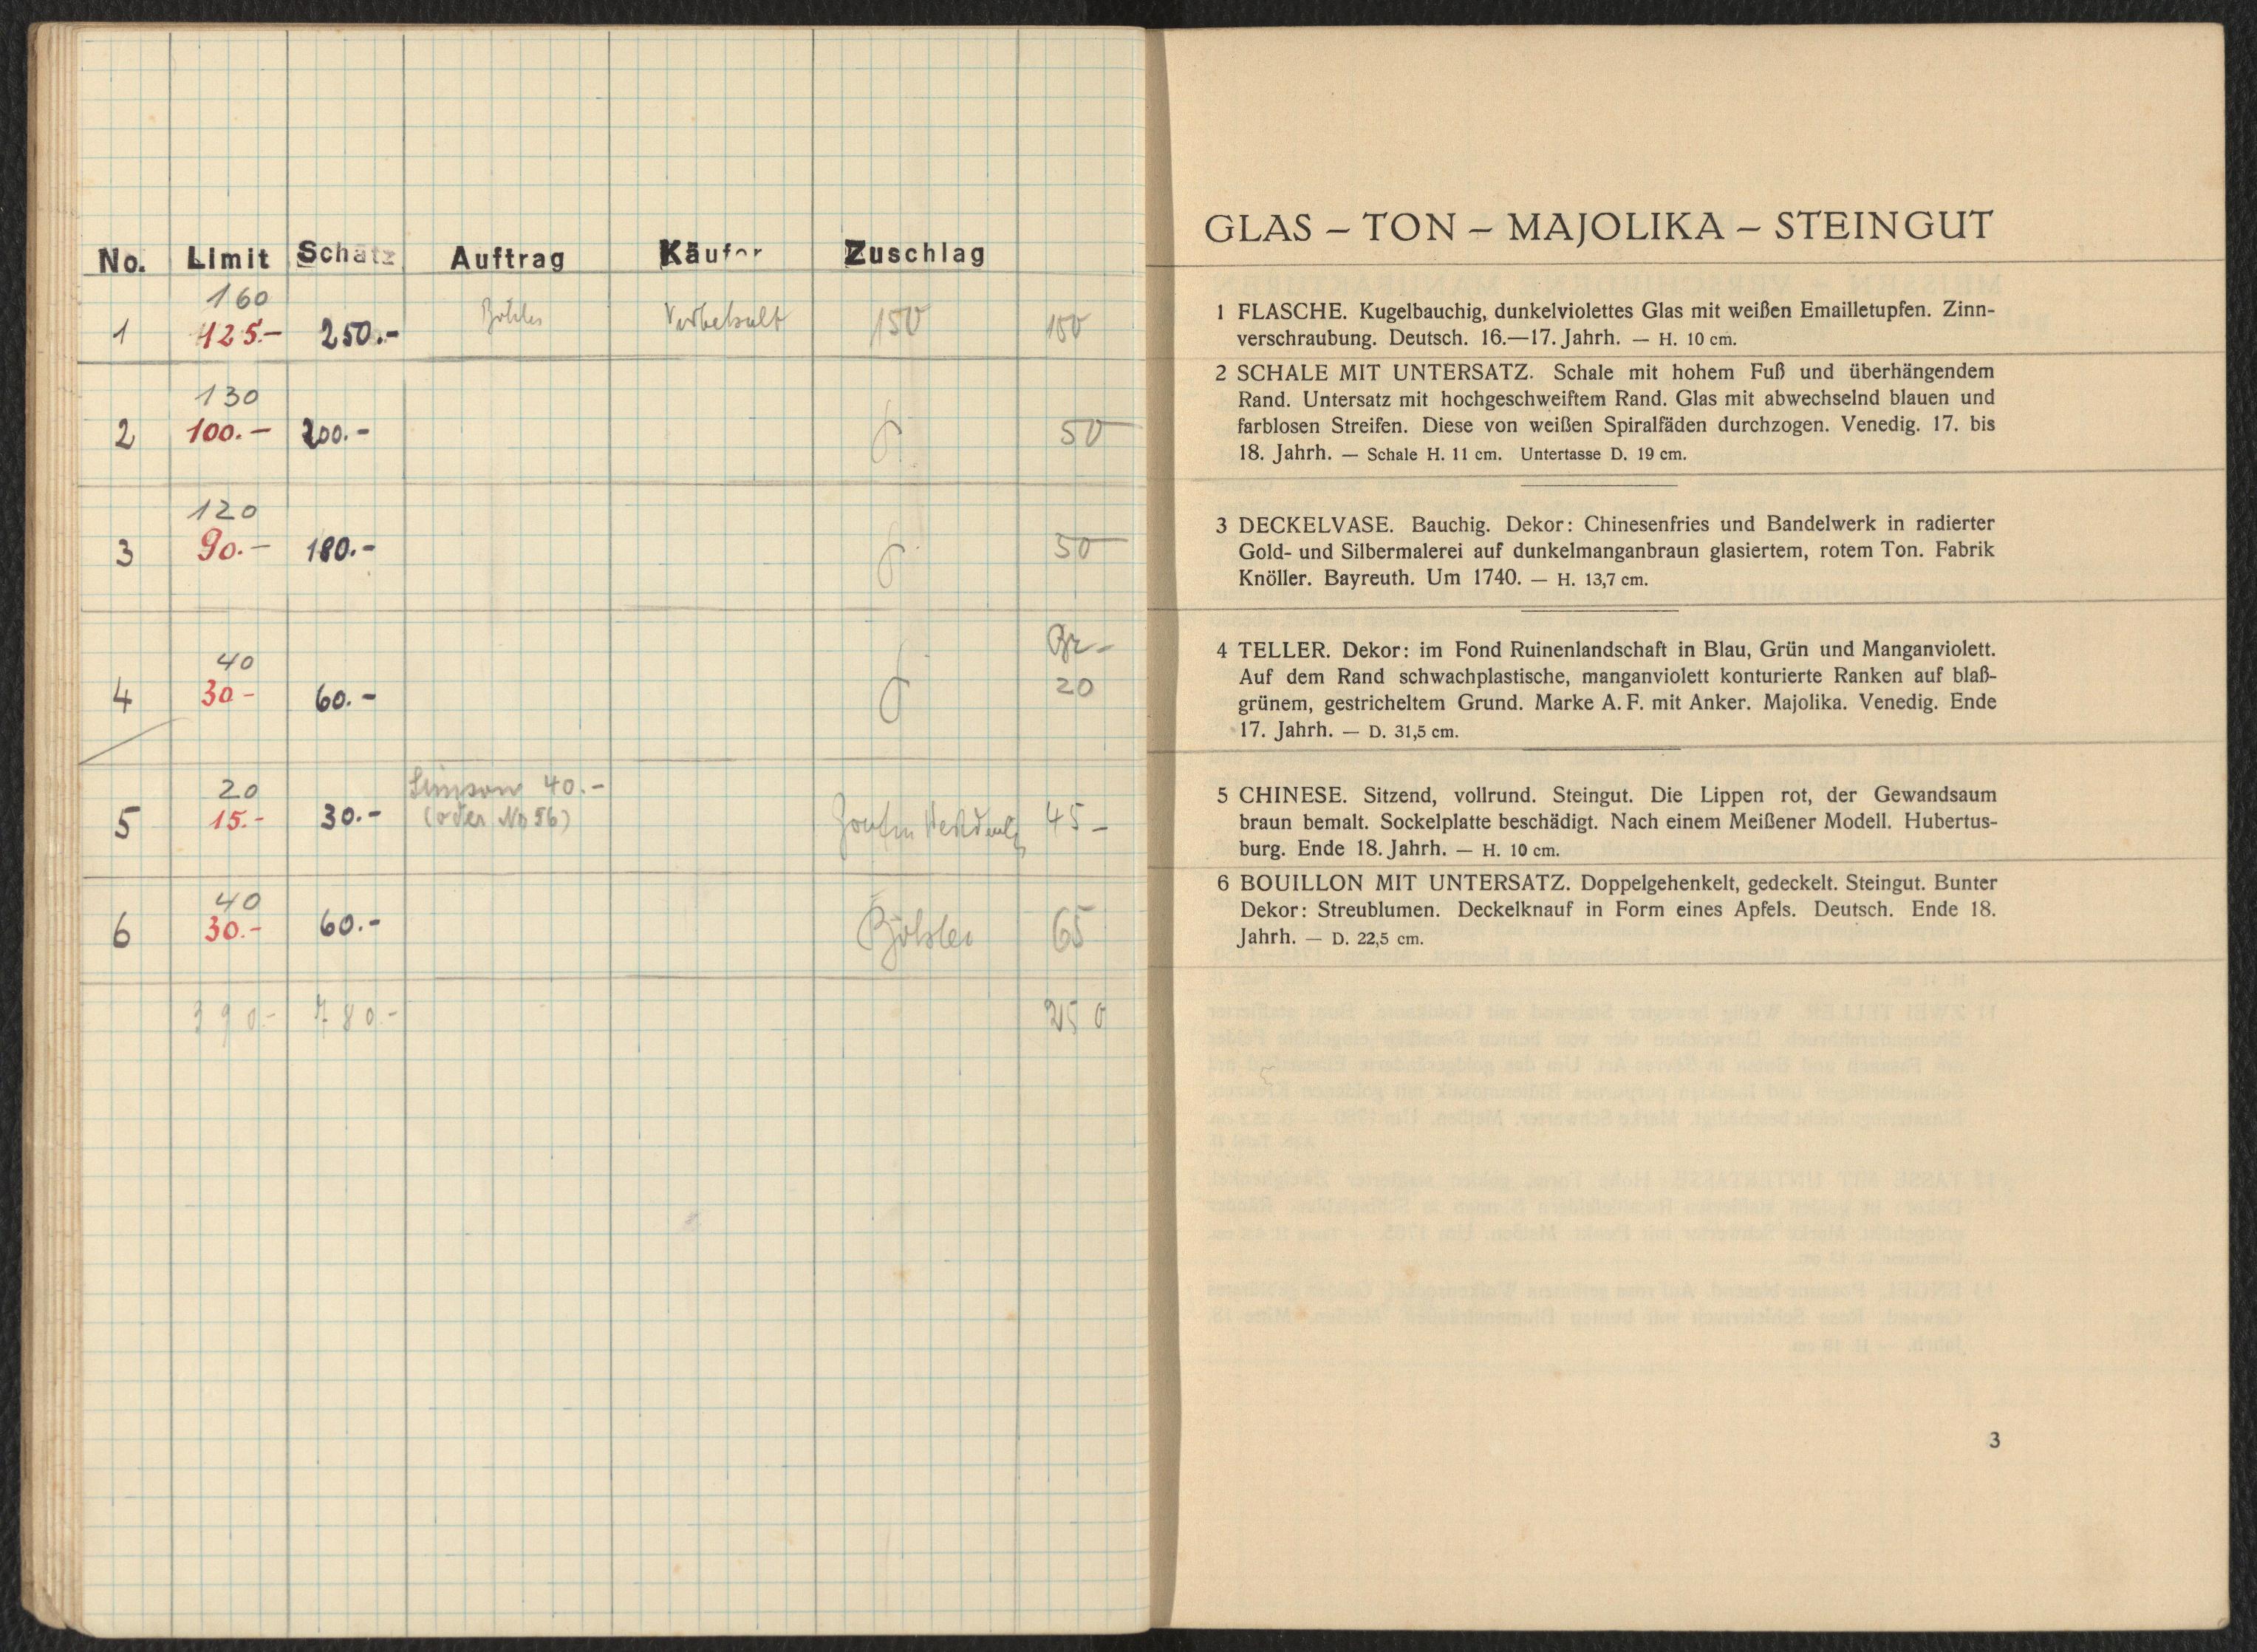 No. Limit Schätz Auftrag Käufer Zuschlag
160
1 125.- 250.- Vorbehalt 150 150
130
2 100.- 200.- 50
120
3 90.- 180.- 50
40
4 30- 60.- 20
20 40.-
5 15.- 30.- (oder No 56) 45-
40
6 30.- 60.- 65
390.- 780.-
GLAS – TON – MAJOLIKA – STEINGUT
1 FLASCHE. Kugelbauchig, dunkelviolettes Glas mit weißen Emailletupfen. Zinn-
verschraubung. Deutsch. 16.—17. Jahrh. — H. 10 cm.
2 SCHALE MIT UNTERSATZ. Schale mit hohem Fuß und überhängendem
Rand. Untersatz mit hochgeschweiftem Rand. Glas mit abwechselnd blauen und
farblosen Streifen. Diese von weißen Spiralfäden durchzogen. Venedig. 17. bis
18. Jahrh. — Schale H. 11 cm. Untertasse D. 19 cm.
3 DECKELVASE. Bauchig. Dekor: Chinesenfries und Bandelwerk in radierter
Gold- und Silbermalerei auf dunkelmanganbraun glasiertem, rotem Ton. Fabrik
Knöller. Bayreuth. Um 1740. — H. 13,7 cm.
4 TELLER. Dekor: im Fond Ruinenlandschaft in Blau, Grün und Manganviolett.
Auf dem Rand schwachplastische, manganviolett konturierte Ranken auf blaß-
grünem, gestricheltem Grund. Marke A. F. mit Anker. Majolika. Venedig. Ende
17. Jahrh. — D. 31,5 cm.
5 CHINESE. Sitzend, vollrund. Steingut. Die Lippen rot, der Gewandsaum
braun bemalt. Sockelplatte beschädigt. Nach einem Meißener Modell. Hubertus-
burg. Ende 18. Jahrh. — H. 10 cm.
6 BOUILLON MIT UNTERSATZ. Doppelgehenkelt, gedeckelt. Steingut. Bunter
Dekor: Streublumen. Deckelknauf in Form eines Apfels. Deutsch. Ende 18.
Jahrh. — D. 22,5 cm.
3